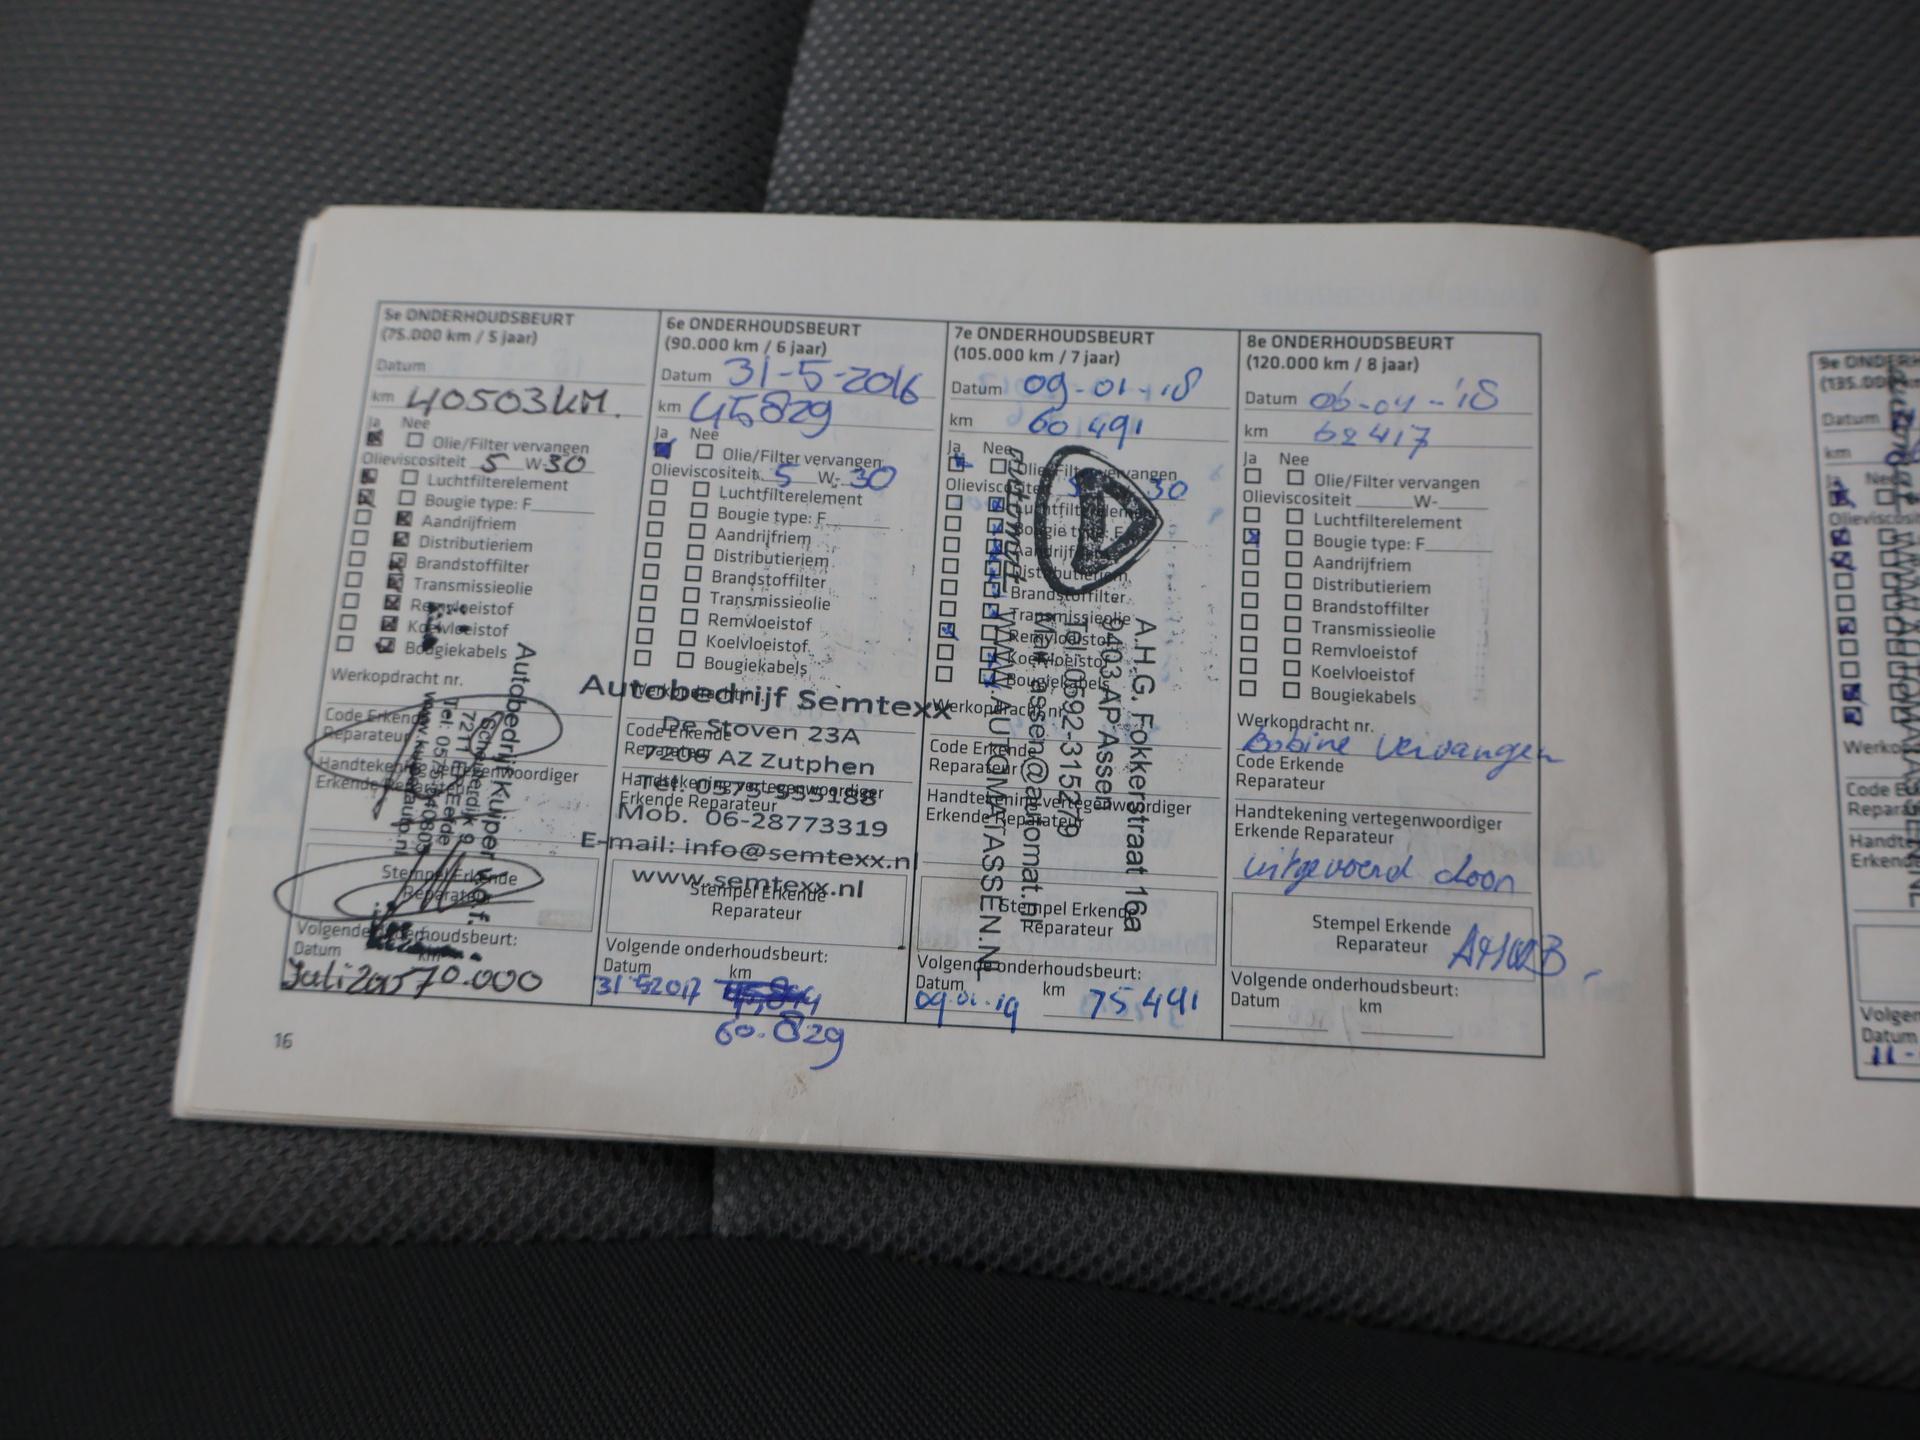 5e ONDERHOUDSBEURT
(75.000 km / 5 jaar)
Datum
km 40503KM.
Ja Nee
Olie/Filter vervangen
Olieviscositeit 5 W-30
Luchtfilterelement
Bougie type: F
Aandrijfriem
Distributieriem
Brandstoffilter
Transmissieolie
Remvloeistof
Koelvloeistof
Bougiekabels
Werkopdracht nr.
Code Erkende
Reparateur
Handtekening vertegenwoordiger
Erkende Reparateur
Autobedrijf Kuiper v.o.f.
Stempel Erkende
Reparateur
Volgende onderhoudsbeurt:
Datum km
Juli 2015 70.000
6e ONDERHOUDSBEURT
(90.000 km / 6 jaar)
Datum 31-5-2016
km 45829
Ja Nee
Olie/Filter vervangen
Olieviscositeit 5 W-30
Luchtfilterelement
Bougie type: F
Aandrijfriem
Distributieriem
Brandstoffilter
Transmissieolie
Remvloeistof
Koelvloeistof
Bougiekabels
Werkopdracht nr.
Autobedrijf Semtexx
De Stoven 23A
Code Erkende
Reparateur
7206 AZ Zutphen
Handtekening vertegenwoordiger
Erkende Reparateur
Mob. 06-28773319
E-mail: info@semtexx.nl
www.semtexx.nl
Stempel Erkende
Reparateur
Volgende onderhoudsbeurt:
Datum km
31 5 2017
60.829
7e ONDERHOUDSBEURT
(105.000 km / 7 jaar)
Datum 09-01-18
km 60491
Ja Nee
Olie/Filter vervangen
Olieviscositeit 5 30
Luchtfilterelement
Bougie type: F
Aandrijfriem
Distributieriem
Brandstoffilter
Transmissieolie
Remvloeistof
Koelvloeistof
Bougiekabels
Werkopdracht nr.
Code Erkende
Reparateur
Handtekening vertegenwoordiger
Erkende Reparateur
automat
A.H.G. Fokkerstraat 16a
9403 AP Assen
Tel. 0592-315279
Mail: assen@automat.nl
WWW.AUTOMATASSEN.NL
Stempel Erkende
Reparateur
Volgende onderhoudsbeurt:
Datum km
09-01-19 75491
8e ONDERHOUDSBEURT
(120.000 km / 8 jaar)
Datum 06-04-'18
km 62417
Ja Nee
Olie/Filter vervangen
Olieviscositeit W-
Luchtfilterelement
Bougie type: F
Aandrijfriem
Distributieriem
Brandstoffilter
Transmissieolie
Remvloeistof
Koelvloeistof
Bougiekabels
Werkopdracht nr.
Bobine vervangen
Code Erkende
Reparateur
Handtekening vertegenwoordiger
Erkende Reparateur
uitgevoerd door
Stempel Erkende
Reparateur
ANWB.
Volgende onderhoudsbeurt:
Datum km
16
9e
(135.00
Datum
km
Ja
Datum
11-